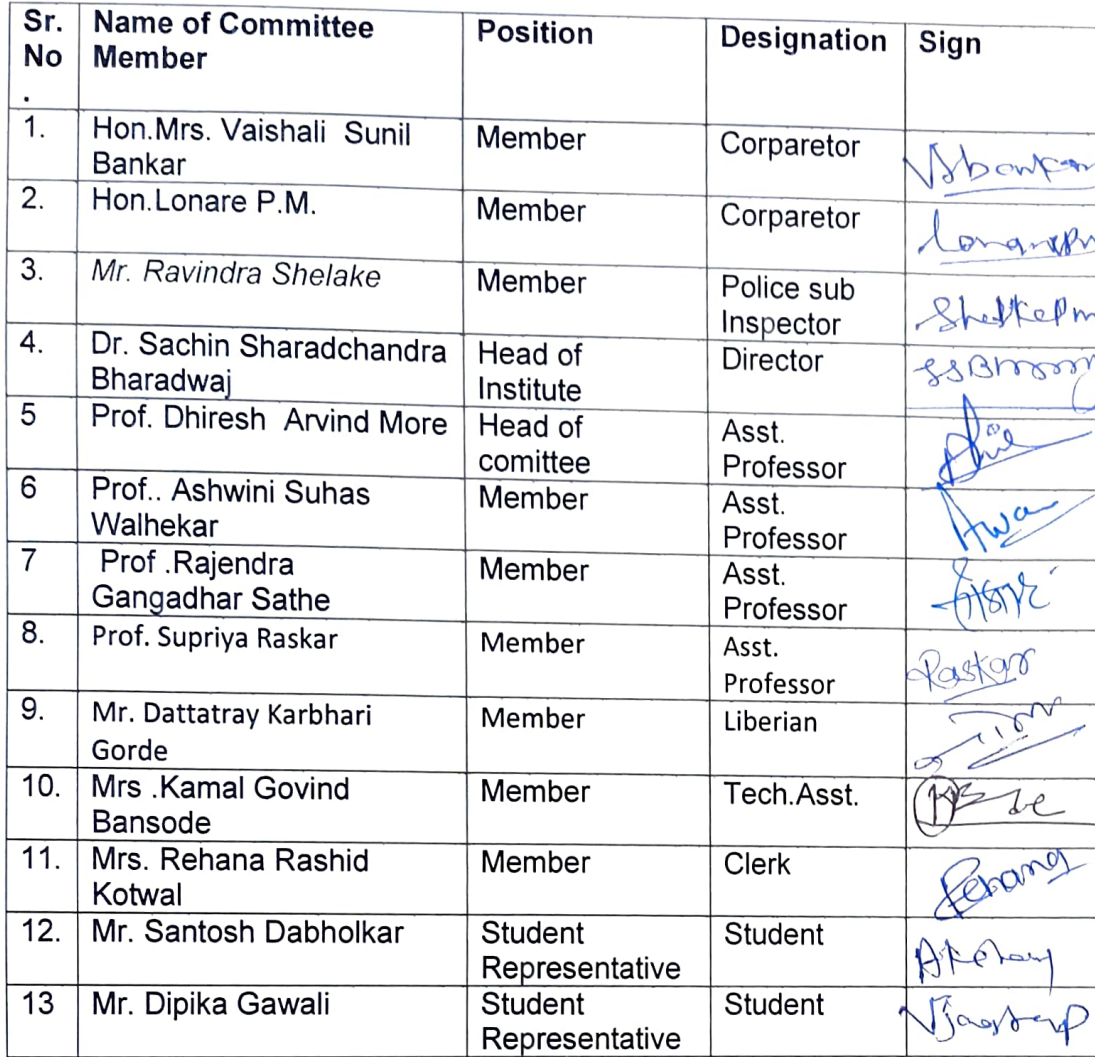 Sr. No . Name of Committee Member Position Designation Sign
1. Hon.Mrs. Vaishali Sunil Bankar Member Corparetor Vsbankar
2. Hon.Lonare P.M. Member Corparetor
3. Mr. Ravindra Shelake Member Police sub Inspector
4. Dr. Sachin Sharadchandra Bharadwaj Head of Institute Director
5 Prof. Dhiresh Arvind More Head of comittee Asst. Professor
6 Prof.. Ashwini Suhas Walhekar Member Asst. Professor
7 Prof .Rajendra Gangadhar Sathe Member Asst. Professor
8. Prof. Supriya Raskar Member Asst. Professor Raskar
9. Mr. Dattatray Karbhari Gorde Member Liberian
10. Mrs .Kamal Govind Bansode Member Tech.Asst.
11. Mrs. Rehana Rashid Kotwal Member Clerk
12. Mr. Santosh Dabholkar Student Representative Student
13 Mr. Dipika Gawali Student Representative Student